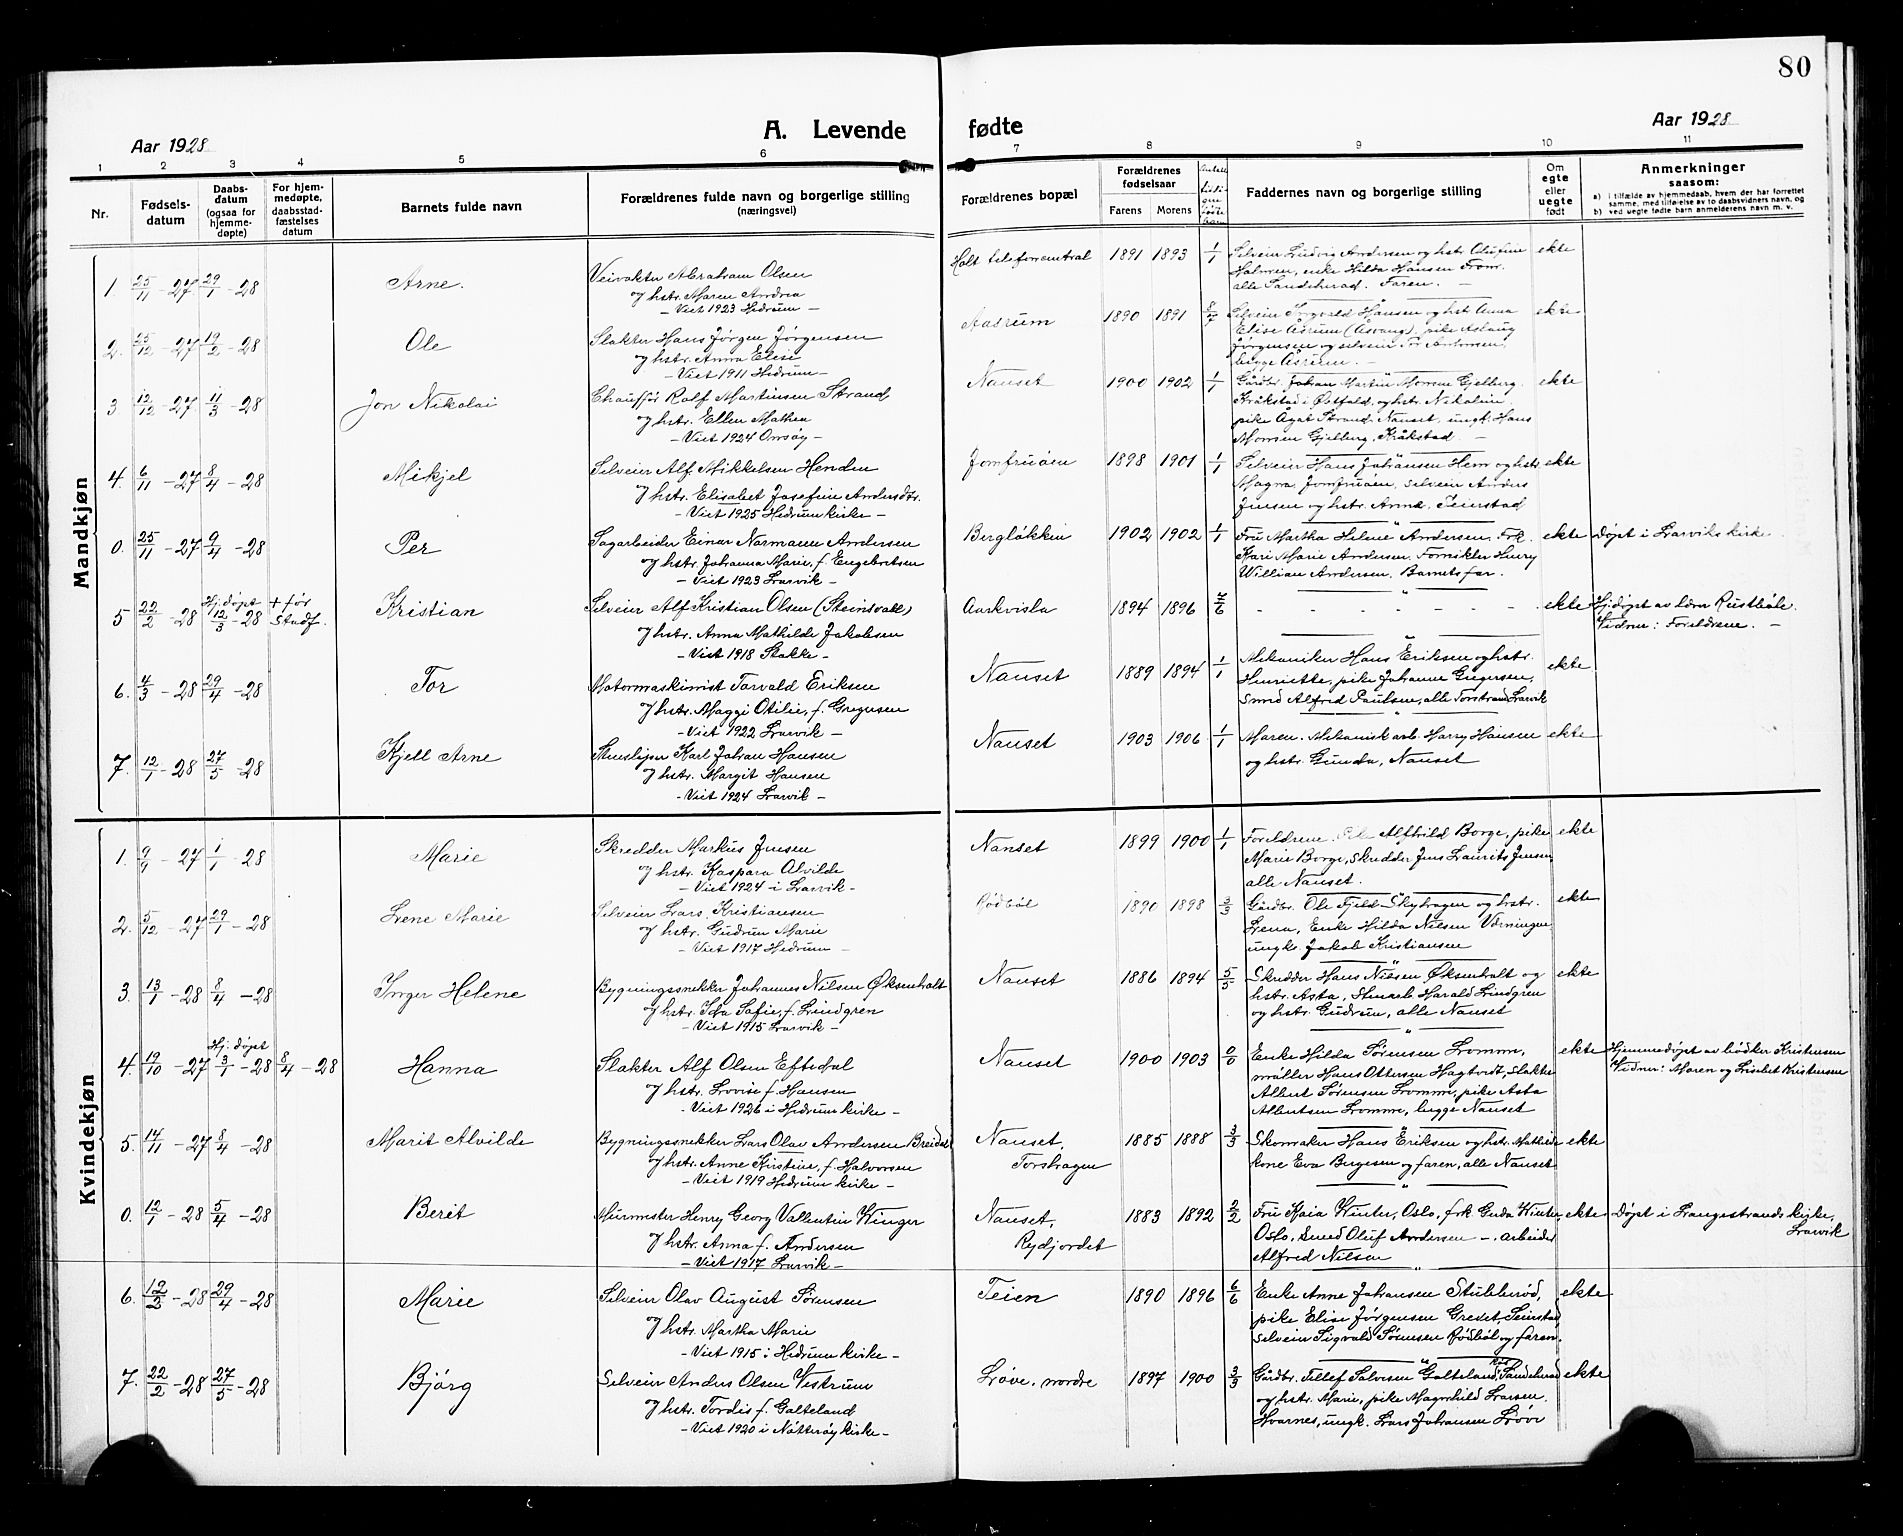 80
Aar 1928.
A. Levende fødte
Aar 1928
1 2 3 4 5 6 7 8 9 10 11
Nr.
Fødsels-
datum
Daabs-
datum
(ogsaa for
hjemme-
døpte)
For hjem-
medøpte,
daabsstad-
fæstelses
datum
Barnets fulde navn
Forældrenes fulde navn og borgerlige stilling
(næringsvei)
Forældrenes bopæl
Forældrenes
fødselsaar
Farens Morens
Faddernes navn og borgerlige stilling
Om
egte
eller
uegte
født
Anmerkninger
saasom:
a) i tilfælde av hjemmedaab, hvem der har forrettet
samme, med tilføielse av to daabsvidners navn, og
b) ved uegte fødte barn anmelderens navn m. v.
Mandkjøn
1. 25/11 - 27 29/1 - 28 Arne. Veivakter Abraham Olsen Holt telefoncentral 1891 1893 1/1 Selveier Ludvig Andersen og hstr. Olufine ekte
og hstr. Maren Andrea Holmen, enke Hilda Hansen From.
- Viet 1923 Hedrum - alle Sandeherad. Faren. -
2. 25/12 - 27 19/2 - 28 Ole Slakter Hans Jørgen Jørgensen Aasrum 1890 1891 8/7 Selveier Ingvald Hansen og hst. Anna ekte
og hstr. Anna Elise Elise Åsrum (Åsvang), pike Aslaug
- Viet 1911 Hedrum - Jørgensen og selveier Tor Antonsen,
begge Åsrum. -
3 12/12 - 27 11/3 - 28 Jon Nikolai Chauffør Rolf Martinsen Strand Nanset 1900 1902 1/1 Gårdbr. Johan Martin Momsen Gjelberg. ekte
og hstr. Ellen Mathea Kråkstad i Østfold, og hstr. Nikoline.
- Viet 1924 Onsøy - pike Ågot Strand, Nanset, ungk. Hans
Momsen Gjelberg, Kråkstad. -
4. 6/11 - 27 8/4 - 28 Mikjel Selveier Alf Mikkelsen Hendun Jomfruåsen 1898 1901 1/1 Selveier Hans Johansen Hem og hstr. ekte
og hstr. Elisabet Josefine Andersdtr. Magna, Jomfruåsen, selveier Anders
- Viet 1925 Hedrum kirke - Jensen og hstr. Anna, Seierstad
0. 25/11 - 27 9/4 - 28 Per Sagarbeider Einar Normann Andersen Bergløkken 1902 1902 1/1 Fru Martha Helene Andersen. Frk. ekte Døpt i Larviks kirke.
og hstr. Johanna Marie, f. Engebretsen Kari Marie Andersen. Fornikler Henry
- Viet 1923 Larvik - Willian Andersen. Barnets far.
5 22/2 - 28 Hj.døpt 12/3 - 28 + før Stadf. Kristian Selveier Alf Kristian Olsen (Steinsvall) Aarkvisla 1894 1896 7/6 - - - - - - - ekte Hj.døpt av lærer Rustbøle.
og hstr. Anna Mathilde Jakobsen Vidner: Foreldrene. -
- Viet 1918 Stokke -
6. 4/3 - 28 29/4 - 28 Tor Motormaskinist Torvald Eriksen Nanset 1889 1894 1/1 Mekaniker Hans Eriksen og hstr. ekte
og hstr. Maggi Otilie, f. Gregersen Henriette, pike Johanne Gregersen,
- Viet 1922 Larvik - Smed Alfred Paulsen, alle Torstrand Larvik
7. 12/1 - 28 27/5 - 28 Kjell Arne Stensliper Karl Johan Hansen Nanset 1903 1906 1/1 Maren. Mekanisk arb. Harry Hansen ekte
og hstr. Margit Hansen og hstr. Gunda, Nanset
- Viet 1924 Larvik -
Kvindekjøn
1. 9/9 - 27 1/1 - 28 Marie Skredder Markus Jensen Nanset 1899 1900 1/1 Foreldrene. Alfhild Borge, pike ekte
og hstr. Kaspara Alvilde Marie Borge, Skredder Jens Laurits Jensen
- Viet 1924 i Larvik - alle Nanset.
2. 5/12 - 27 29/1 - 28 Lene Marie Selveier Lars Kristiansen Rødbøl 1890 1898 3/3 Gårdbr. Ole Fjeld Skyhagen og hstr. ekte
og hstr. Gudrun Marie Lena, Enke Hilda Nielsen
- Viet 1917 Hedrum - ungk. Jakob Kristiansen
3. 13/1 - 28 8/4 - 28 Inger Helene Bygningssnekker Johannes Nilsen Øksenholt Nanset 1886 1894 5/5 Skredder Hans Nilsen Øksenholt og ekte
og hstr. Ida Sofie, f. Lindgren hstr. Asta, Stenarb. Harald Lindgren
- Viet 1915 Larvik - og hstr. Gudrun, alle Nanset
4. 19/10 - 27 Hj. døpt 3/1 - 28 8/4 - 28 Hanna Slakter Alf Olsen Eftedal Nanset 1900 1903 0/0 Enke Hilda Sørensen Lomme, ekte Hjemmedøpt av bødker Kristensen
og hstr. Lovise f. Hansen møller Hans Ottersen Hagtvedt, slakter Vidner: Maren og Liselet Kristensen
- Viet 1926 i Hedrum kirke - Albert Sørensen Lomme, pike Asta
Albertsen Lomme, begge Nanset
5. 14/11 - 27 8/4 - 28 Marit Alvilde Bygningssnekker Lars Olav Andersen Breidal Nanset, 1885 1888 3/3 Skomaker Hans Eriksen og hstr. Mathilde ekte
og hstr. Anne Kirstine, f. Halvorsen Torshagen kone Eva Birgesen og faren, alle Nanset
- Viet 1919 Hedrum kirke -
0. 12/1 - 28 5/4 - 28 Berit Murmester Henry Georg Vallentin Winger Nanset, 1883 1892 2/2 Fru Kaia Winter, Oslo, frk Guda Winter, ekte Døpt i Langestrands kirke,
og hstr. Anna f. Andersen Rydjordet Oslo, Smed Oluf Andersen -, arbeider Larvik
- Viet 1917 Larvik - Alfred Nilsen
6. 12/2 - 28 29/4 - 28 Marie Selveier Olav August Sørensen Teien 1890 1896 6/6 Enke Anne Johansen Stubberød, ekte
og hstr. Martha Marie pike Elise Jørgensen Gredet, Seierstad
- Viet 1915 i Hedrum kirke - selveier Sigvald Sørensen Rødbøl og faren
7. 22/2 - 28 27/5 - 28 Bjørg Selveier Anders Olsen Vestrum Løve, nordre 1897 1900 3/3 Gårdbr. Tellef Salvesen Galteland, Sandeherad ekte
og hstr. Tordis f. Galteland og hstr. Marie, pike Magnhild Larsen
- Viet 1920 i Nøtterøy kirke - Hvarnes, ungk. Lars Johansen Løve